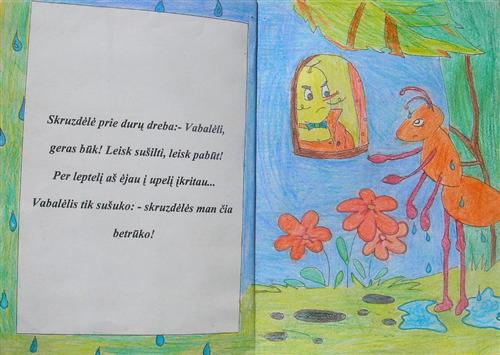 Skruzdėlė prie durų dreba:- Vabalėli,
geras būk! Leisk sušilti, leisk pabūt!
Per leptelį aš ėjau į upelį įkritau...
Vabalėlis tik sušuko: - skruzdėlės man čia
betrūko!